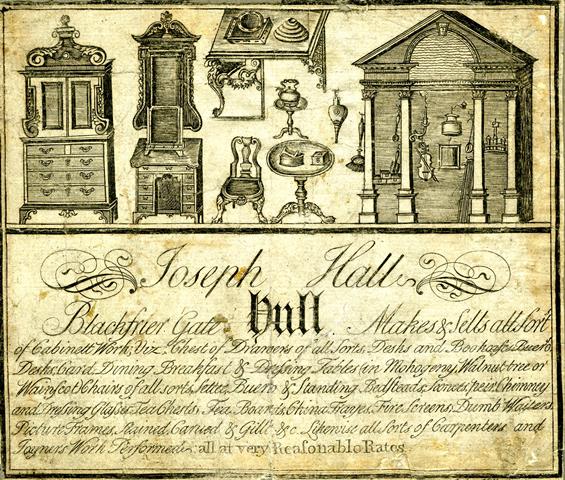 Joseph Hall
Blackfrier Gate Hull Makes & Sells all Sorts
of Cabinett Work, Viz. Chest of Drawers of all Sorts, Desks and Bookcases, Buero
Desks, Card, Dining, Breakfast & Dresing Tables (in Mahogeny, Walnuttree or
Wainscot) Chairs of all sorts, Settee, Buero & Standing Bedsteads, Sconces, peir, Chimney
and Dresing Glases, Tea Chests, Tea Boards, China Trayes, Fire Screens, Dumb Waiters,
Picture Frames, Stained, Carved & Gilt &c. Likewise all Sorts of Carpenters and
Joyners Work Performed all at very Reasonable Rates